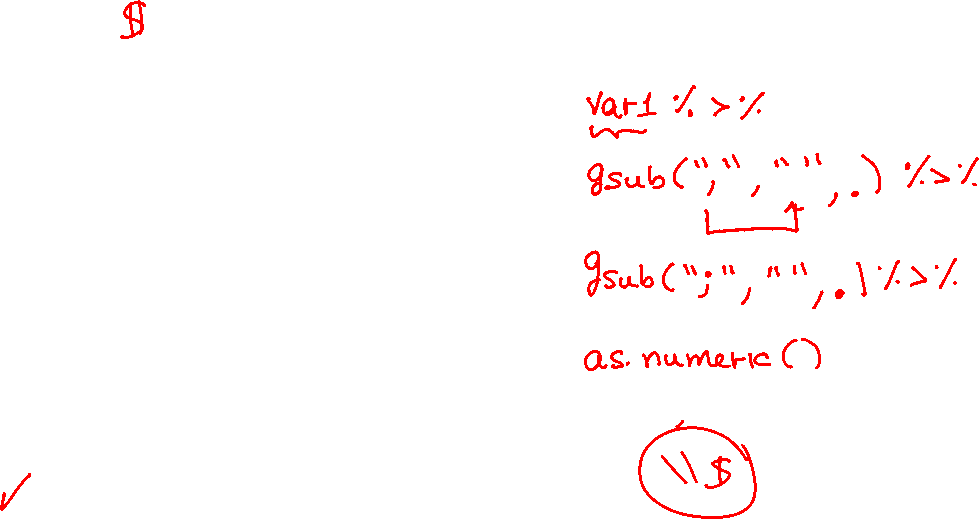 $
var1 %>%
gsub(",", "", .) %>%
gsub(";", "", .) %>%
as.numeric()
\\$